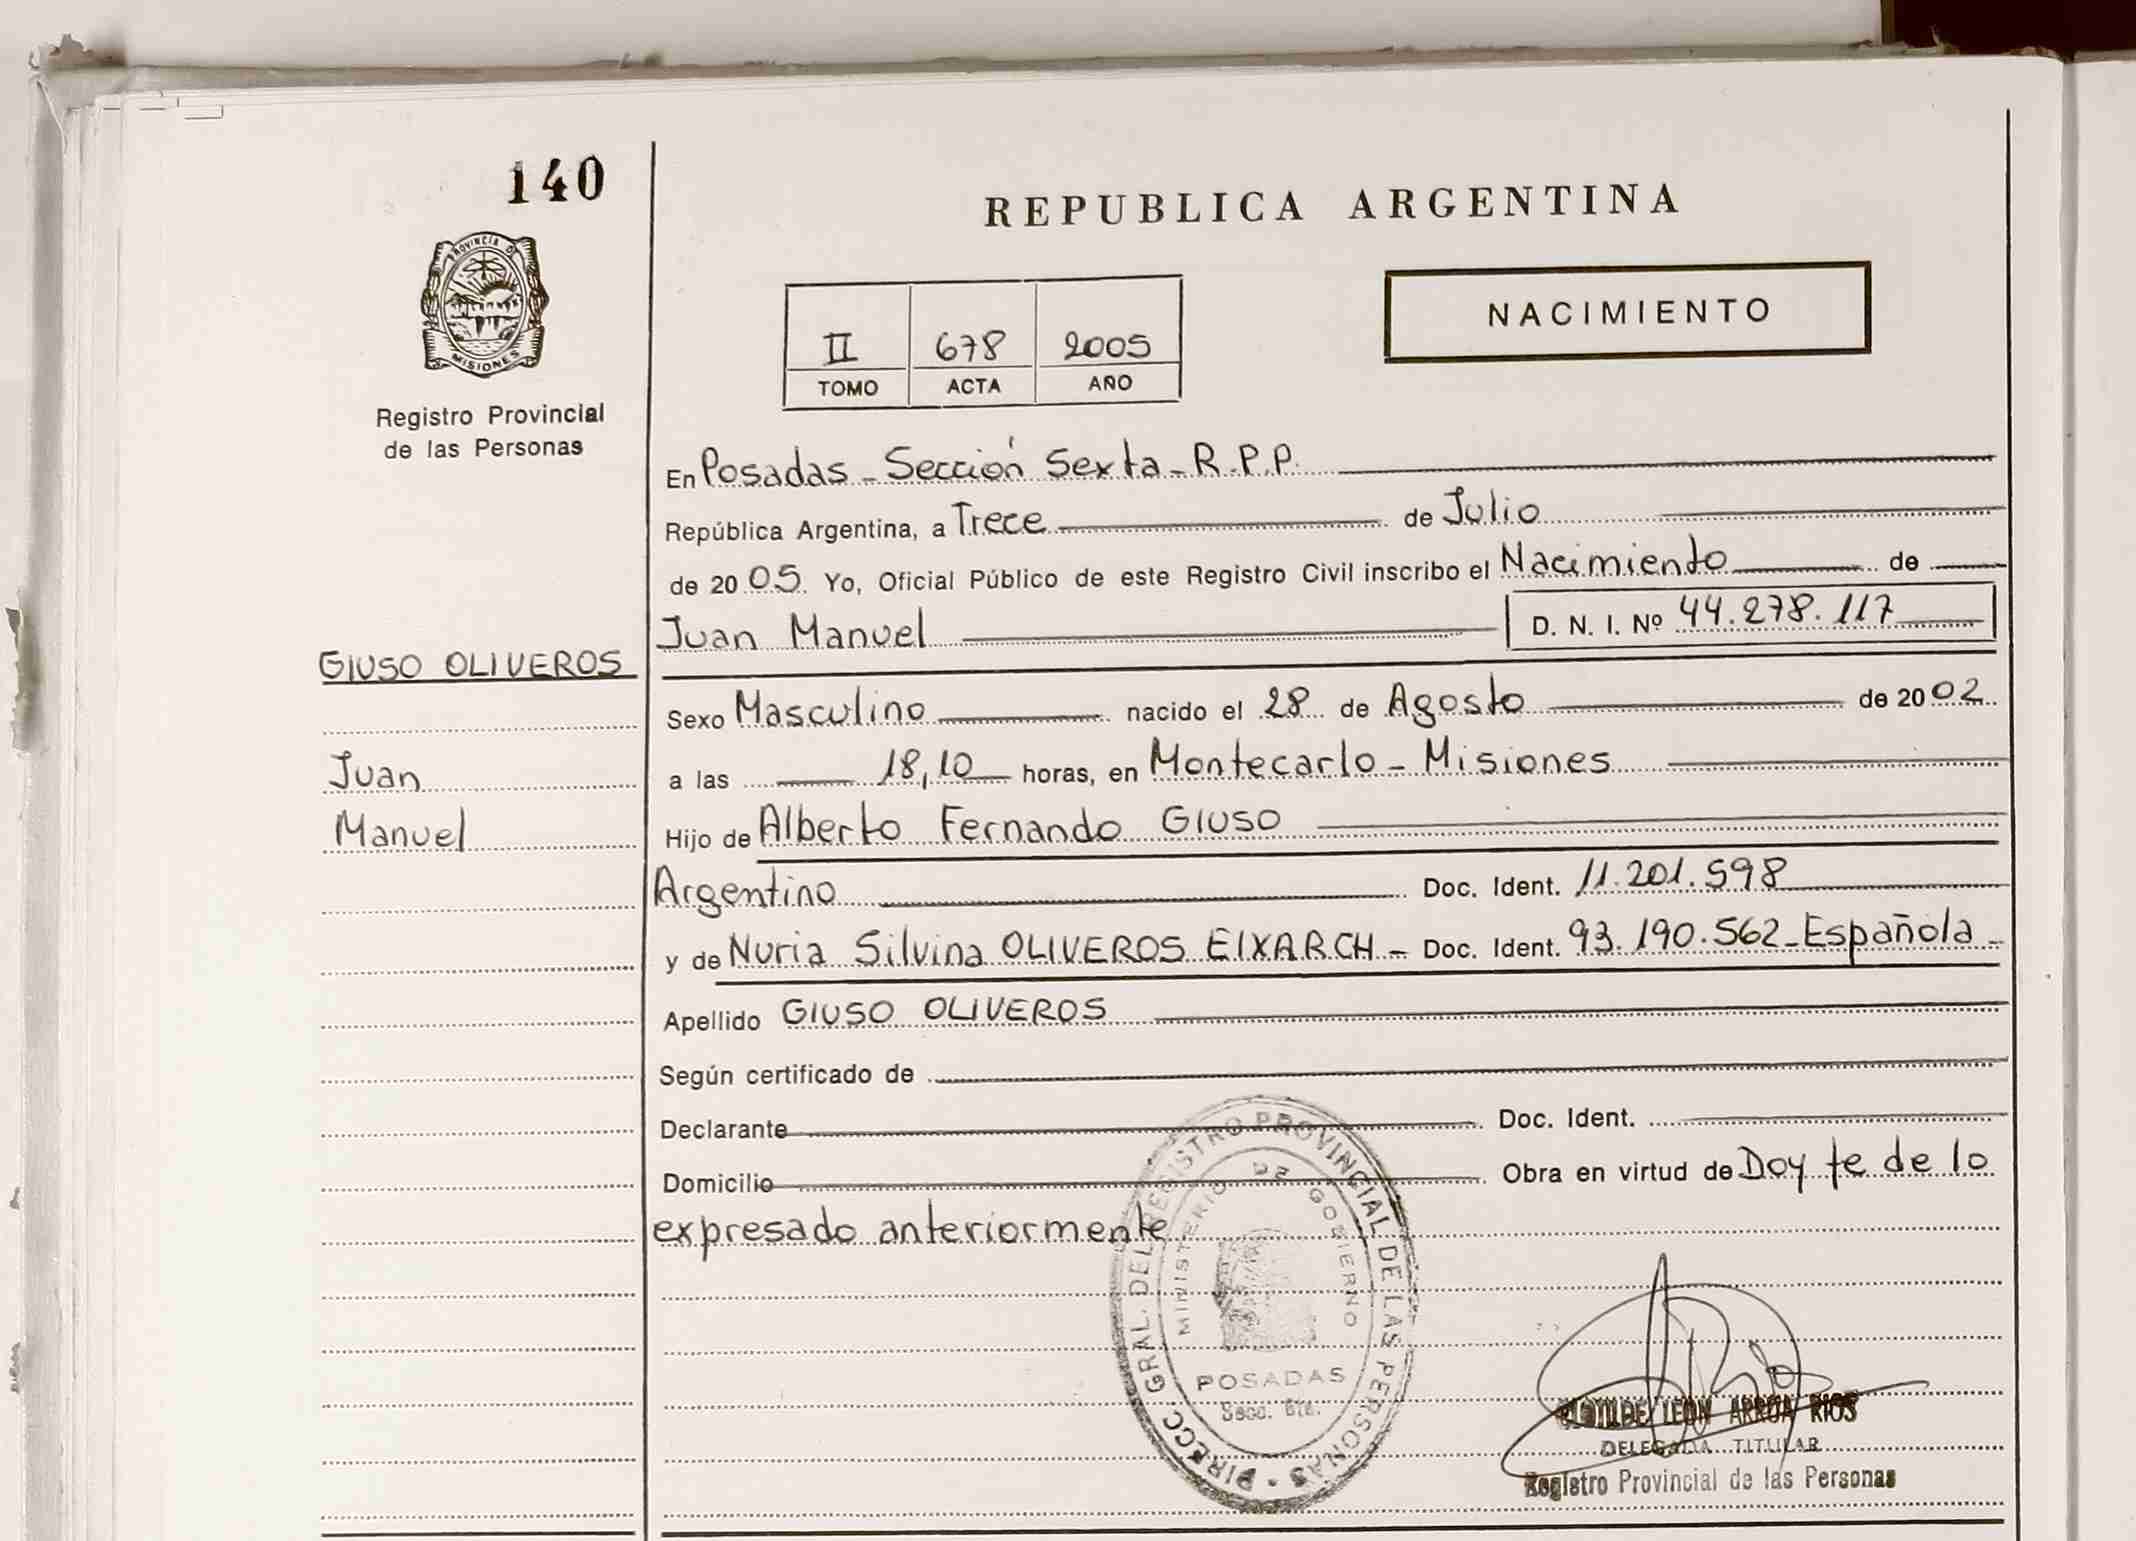 140
PROVINCIA DE
MISIONES
Registro Provincial
de las Personas
REPUBLICA ARGENTINA
NACIMIENTO
II 678 2005
TOMO ACTA AÑO
En Posadas - Sección Sexta - R.P.P.
República Argentina, a Trece de Julio
de 2005. Yo, Oficial Público de este Registro Civil inscribo el Nacimiento de
Juan Manuel D. N. I. Nº 44.278.117
GIUSO OLIVEROS
Juan
Manuel
Sexo Masculino nacido el 28 de Agosto de 2002
a las 18,10 horas, en Montecarlo - Misiones
Hijo de Alberto Fernando GIUSO
Argentino Doc. Ident. 11.201.598
y de Nuria Silvina OLIVEROS EIXARCH - Doc. Ident. 93.190.562 - Española -
Apellido GIUSO OLIVEROS
Según certificado de
Declarante Doc. Ident.
Domicilio Obra en virtud de Doy fe de lo
expresado anteriormente
DIRECC. GRAL. DEL REGISTRO PROVINCIAL DE LAS PERSONAS
MINISTERIO DE GOBIERNO
POSADAS
Secc. 6ta.
LEON ARROA RIOS
DELEGADA TITULAR
Registro Provincial de las Personas